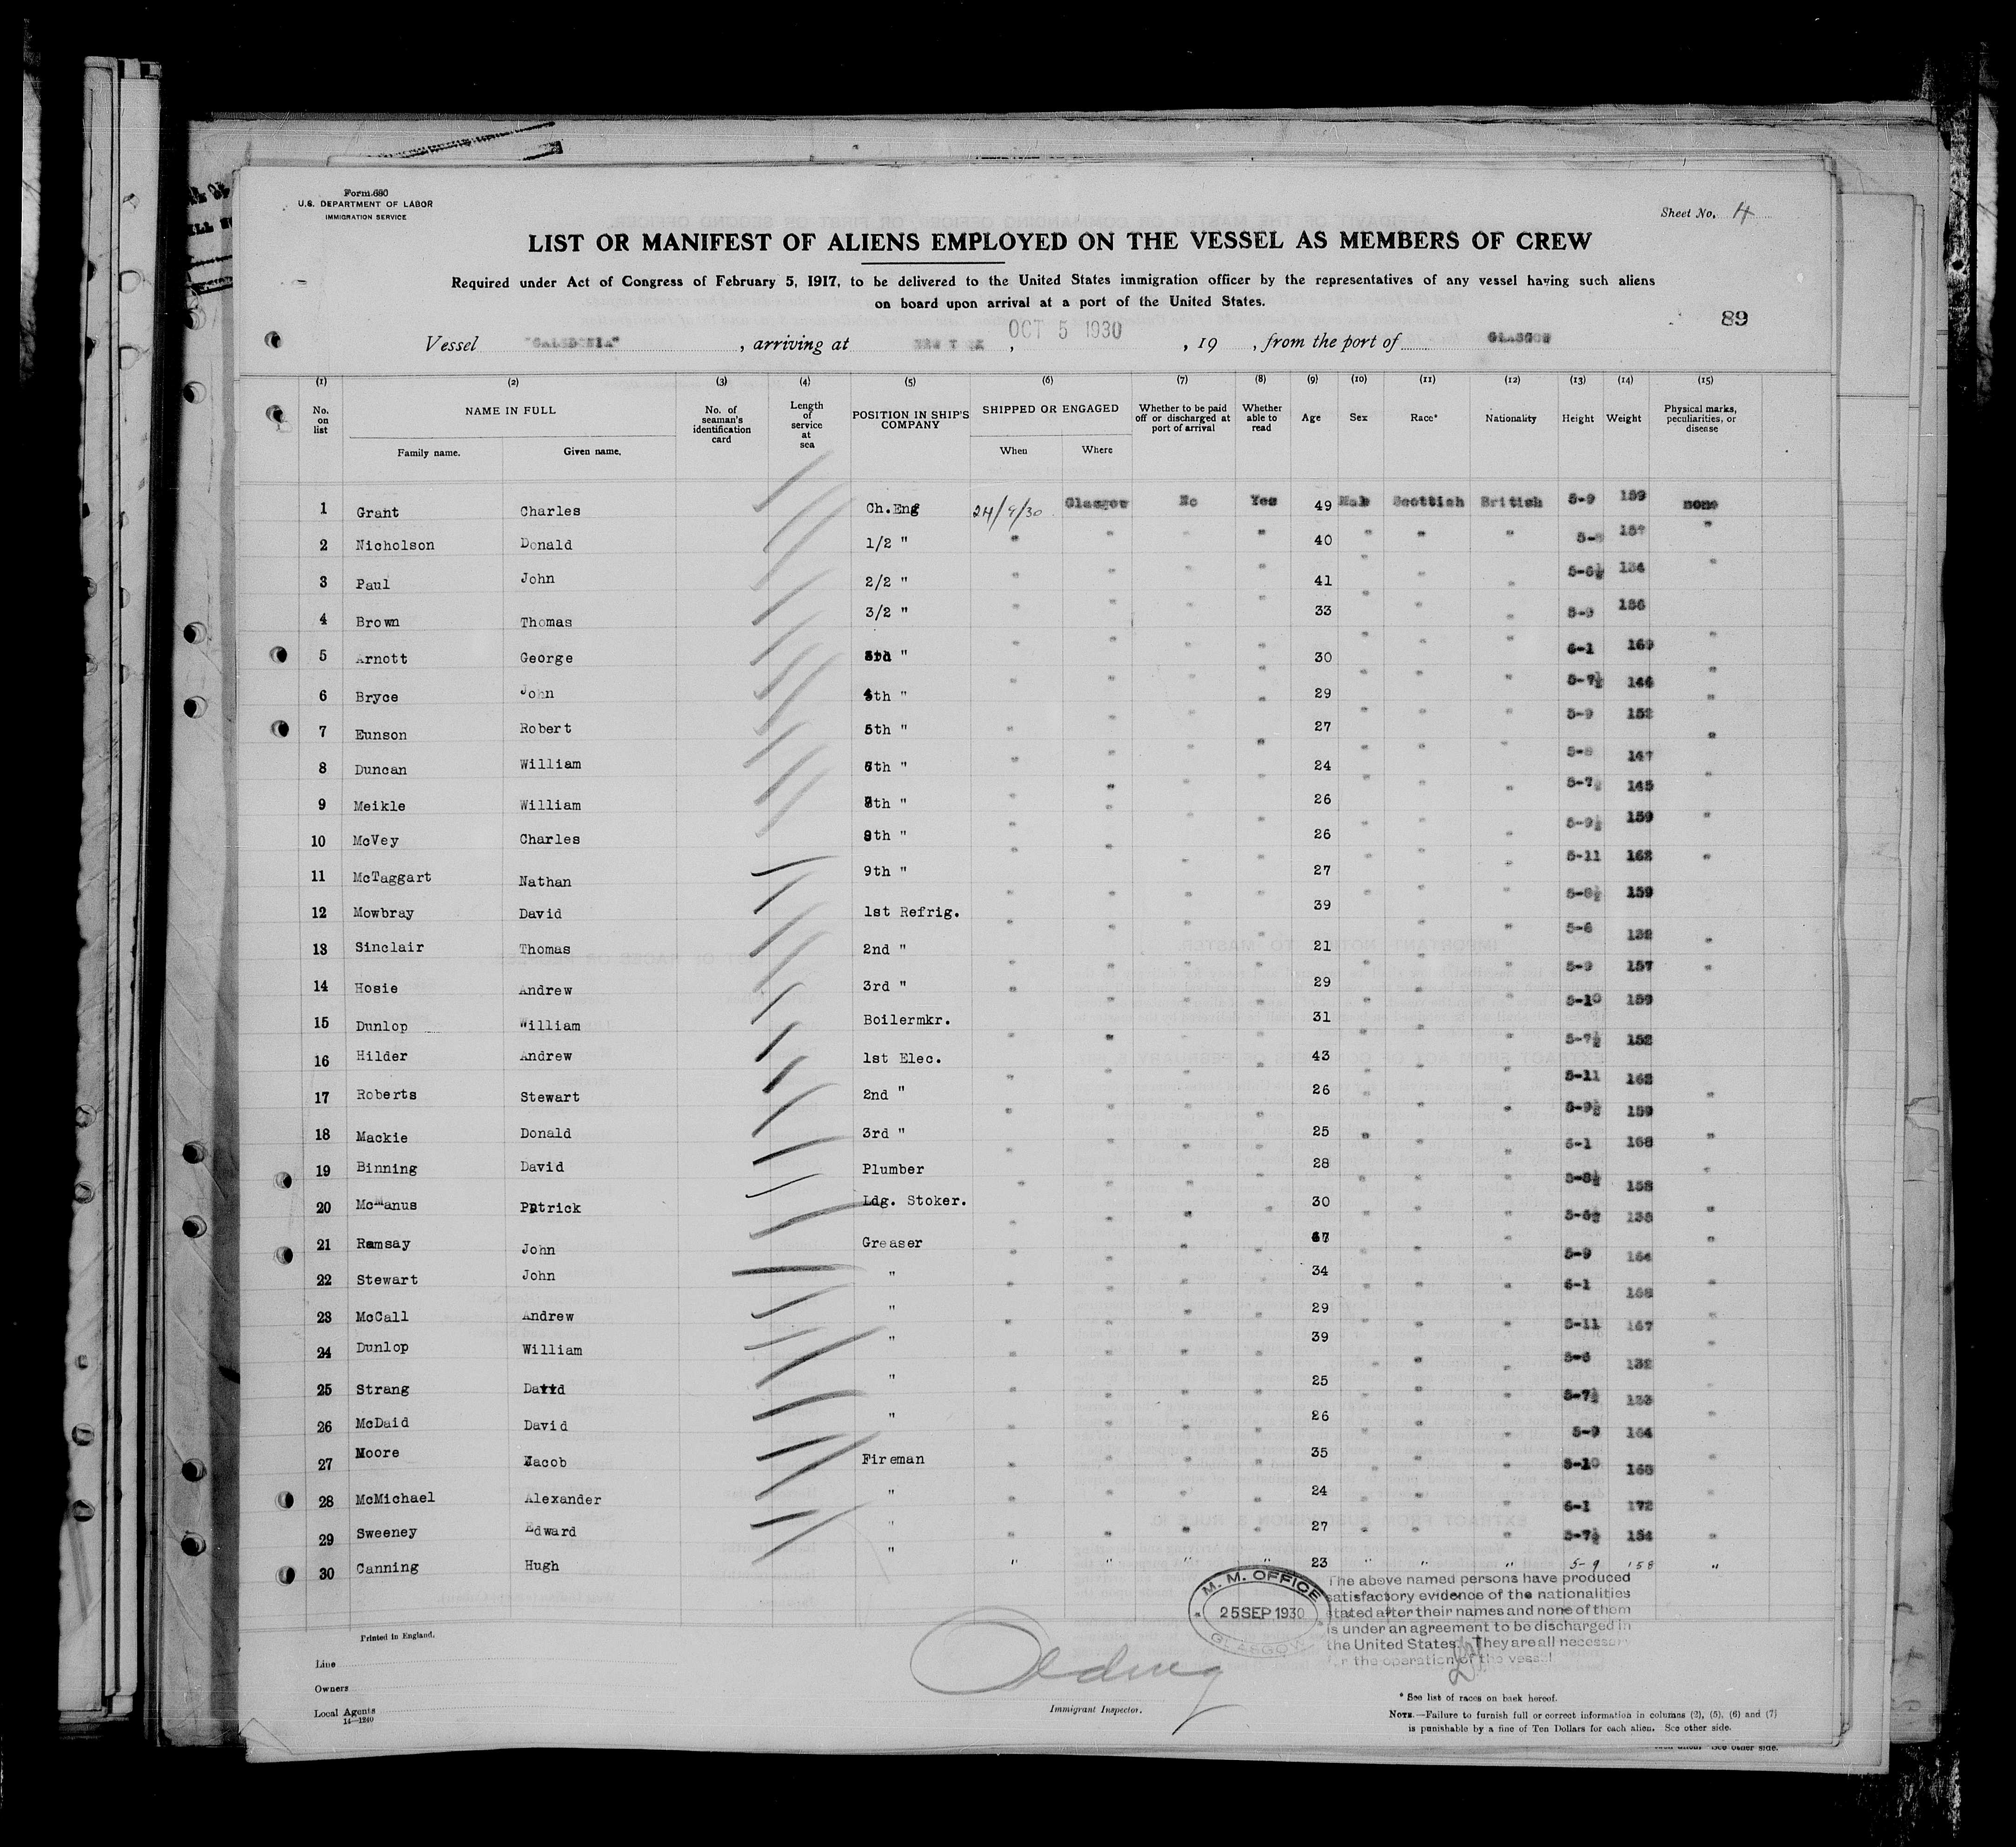 Form 680
U.S. DEPARTMENT OF LABOR
IMMIGRATION SERVICE
Sheet No. 4
LIST OR MANIFEST OF ALIENS EMPLOYED ON THE VESSEL AS MEMBERS OF CREW
Required under Act of Congress of February 5, 1917, to be delivered to the United States immigration officer by the representatives of any vessel having such aliens
on board upon arrival at a port of the United States.
89
Vessel "CALEDONIA", arriving at NEW YORK, OCT 5 1930, 19 , from the port of GLASGOW
(1) (2) (3) (4) (5) (6) (7) (8) (9) (10) (11) (12) (13) (14) (15)
No. on list NAME IN FULL Family name. Given name. No. of seaman's identification card Length of service at sea POSITION IN SHIP'S COMPANY SHIPPED OR ENGAGED When Where Whether to be paid off or discharged at port of arrival Whether able to read Age Sex Race* Nationality Height Weight Physical marks, peculiarities, or disease
1 Grant Charles Ch.Eng 24/9/30 Glasgow No Yes 49 Male Scottish British 5-9 159 none
2 Nicholson Donald 1/2 " " " " " 40 " " " 5-8 157 "
3 Paul John 2/2 " " " " " 41 " " " 5-6½ 134 "
4 Brown Thomas 3/2 " " " " " 33 " " " 5-9 156
5 Arnott George 3rd " " " " " 30 " " " 6-1 169 "
6 Bryce John 4th " " " " " 29 " " " 5-7½ 144 "
7 Eunson Robert 5th " " " " " 27 " " " 5-9 152 "
8 Duncan William 6th " " " " " 24 " " " 5-8 147 "
9 Meikle William " " " " " 26 " " " 5-7½ 145 "
10 McVey Charles 8th " " " " " 26 " " " 5-9½ 159 "
11 McTaggart Nathan 9th " " " " " 27 " " " 5-11 162 "
12 Mowbray David 1st Refrig. " " " " 39 " " " 5-8½ 159
13 Sinclair Thomas 2nd " " " " " 21 " " " 5-6 132 "
14 Hosie Andrew 3rd " " " " " 29 " " " 5-9 157 "
15 Dunlop William Boilermkr. " " " " 31 " " " 5-10 159
16 Hilder Andrew 1st Elec. " " " " 43 " " " 5-7½ 152
17 Roberts Stewart 2nd " " " " " 26 " " " 5-11 162 "
18 Mackie Donald 3rd " " " " " 25 " " " 5-9½ 159 "
19 Binning David Plumber " " " " 28 " " " 6-1 168 "
20 McManus Patrick Ldg. Stoker. " " " " 30 " " " 5-8½ 158 "
21 Ramsay John Greaser " " " " " " " 138 "
22 Stewart John " " " " " 34 " " " 5-9 154 "
23 McCall Andrew " " " " " 29 " " " 6-1 168
24 Dunlop William " " " " " 39 " " " 5-11 167 "
25 Strang David " " " " " 25 " " " 5-6 132
26 McDaid David " " " " " 26 " " " 5-7½ 133 "
27 Moore Jacob Fireman " " " " 35 " " " 5-9 164 "
28 McMichael Alexander " " " " " 24 " " " 5-10 "
29 Sweeney Edward " " " " " 27 " " " 6-1 172 "
30 Canning Hugh " " " " " 23 " " " 5-9 158 "
5-7½ 154
M. M. OFFICE
25 SEP 1930
GLASGOW
The above named persons have produced
satisfactory evidence of the nationalities
stated after their names and none of them
is under an agreement to be discharged in
the United States. They are all necessary
for the operation of the vessel
Printed in England.
Line
Owners
Local Agents
14—1240
Immigrant Inspector.
* See list of races on back hereof.
NOTE.—Failure to furnish full or correct information in columns (2), (5), (6) and (7)
is punishable by a fine of Ten Dollars for each alien. See other side.
See other side.